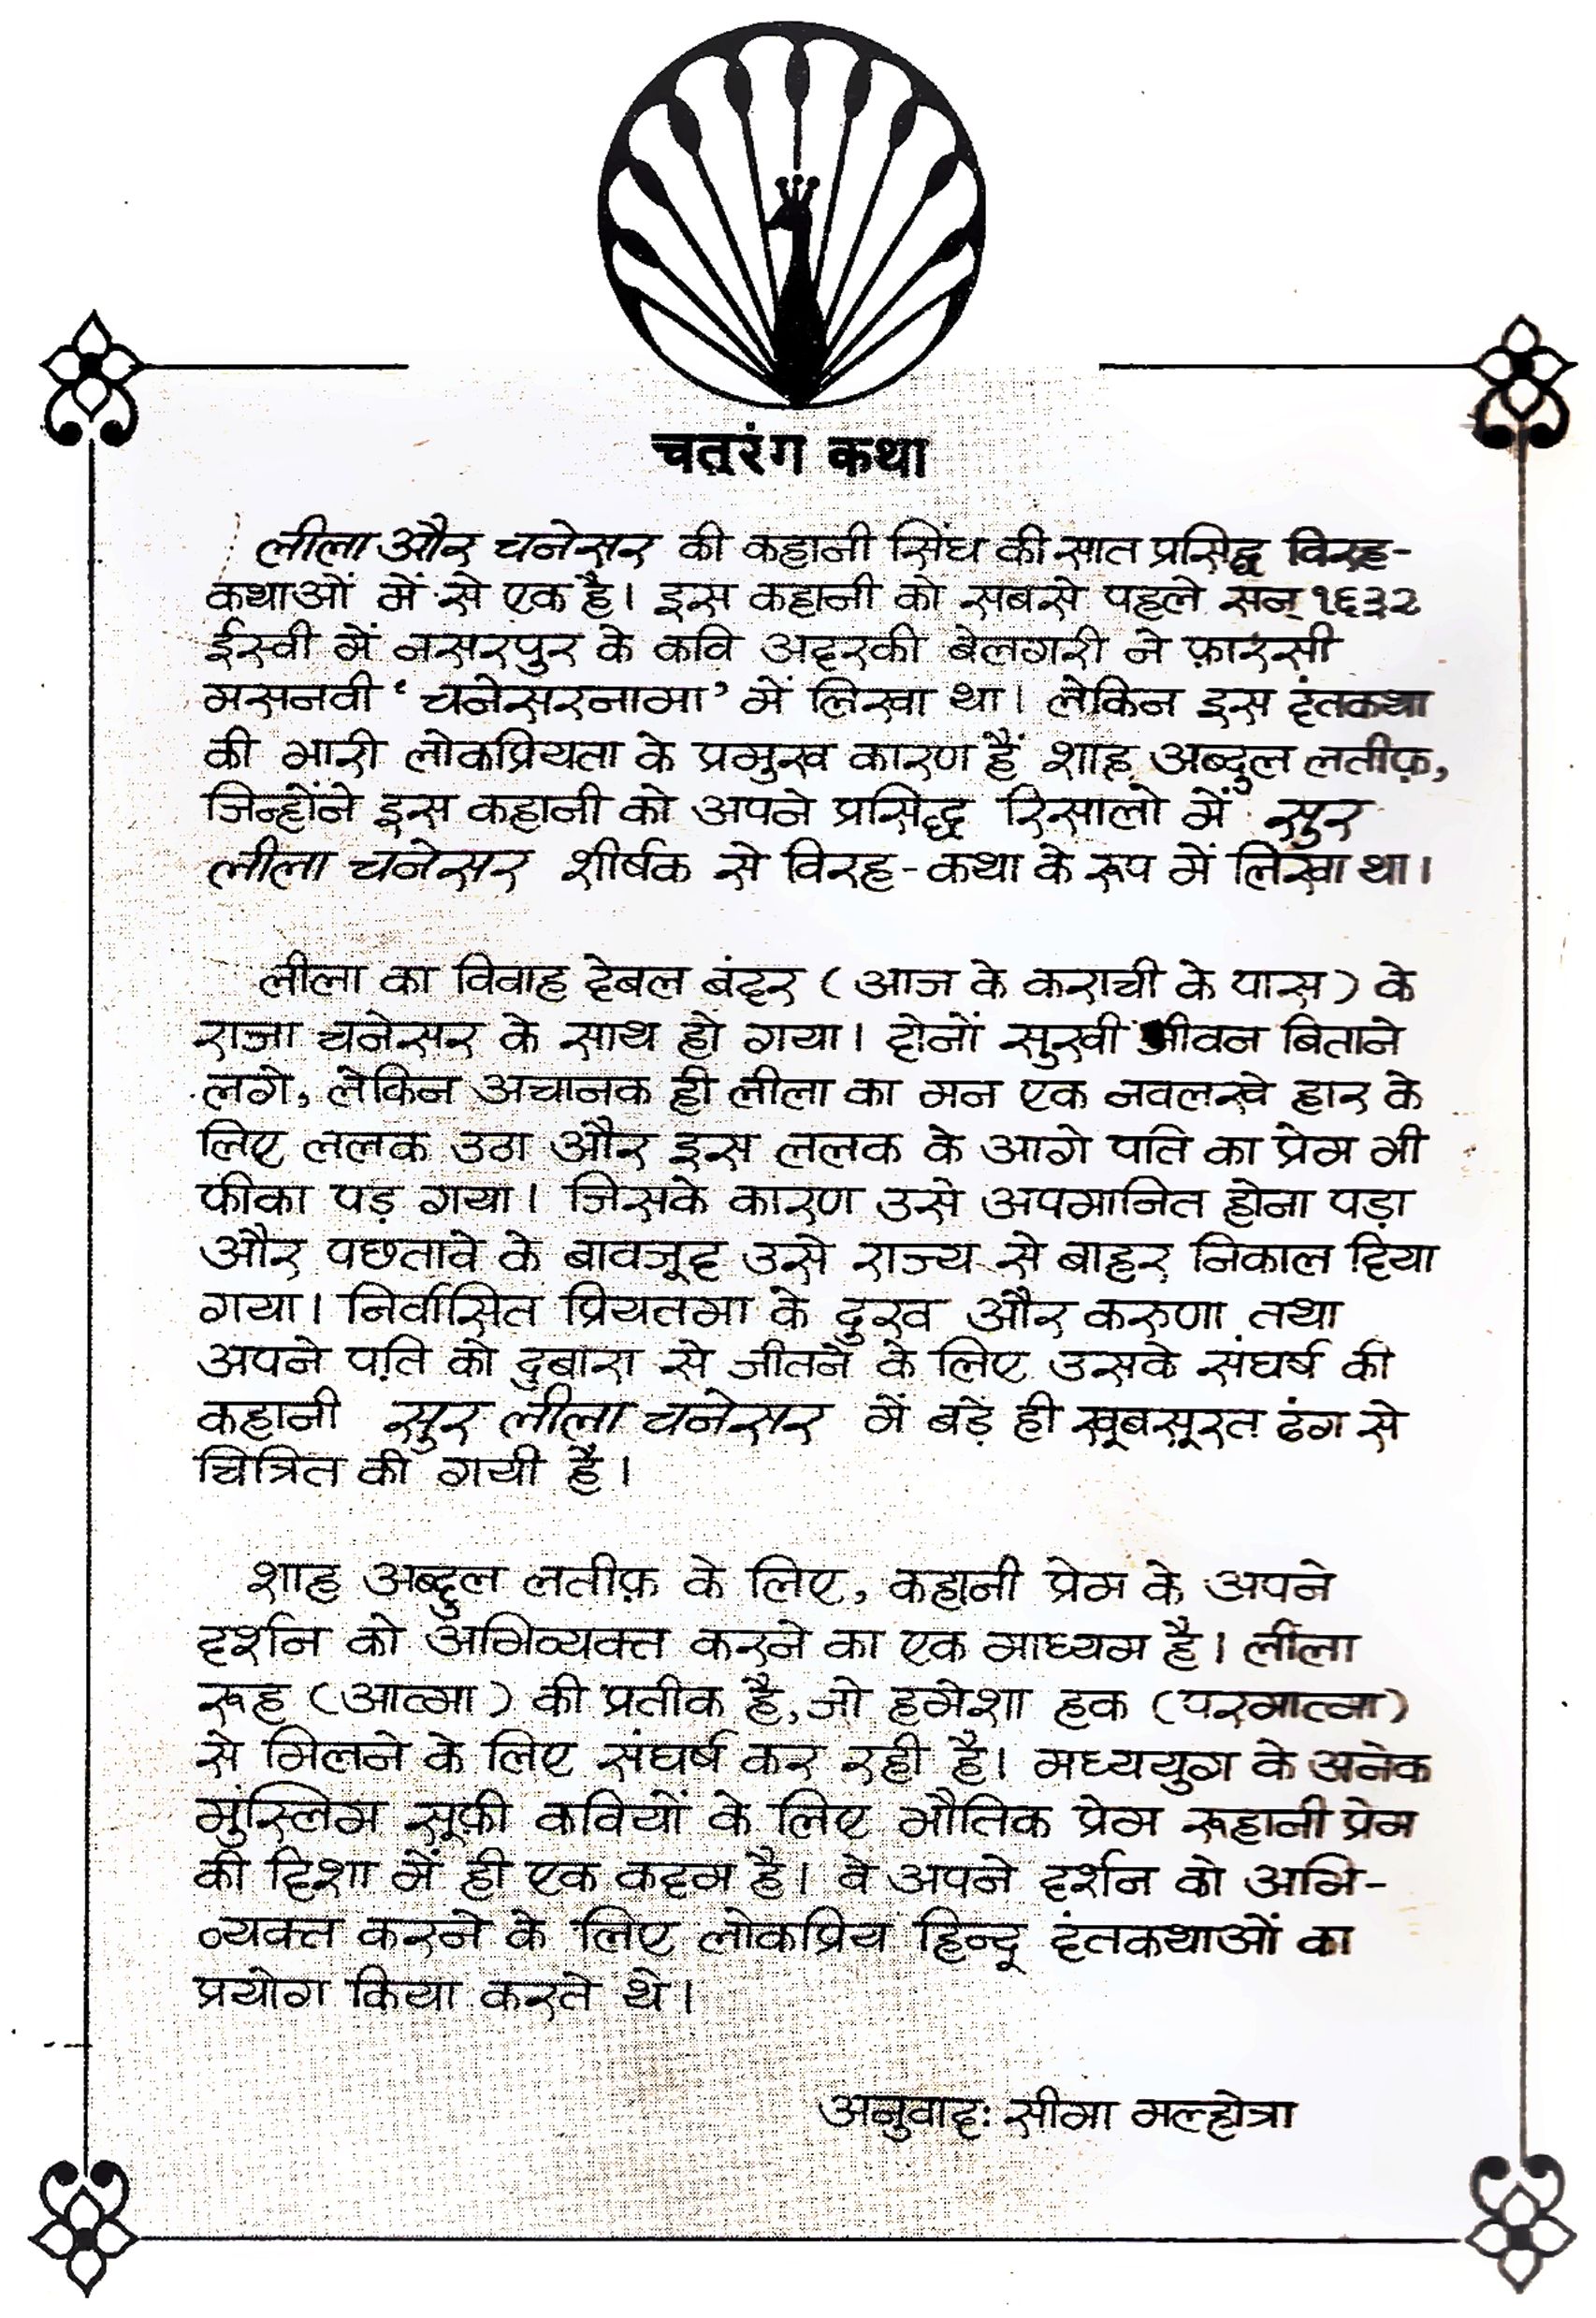 चतुरंग कथा
लीला और चनेसर की कहानी सिंध की सात प्रसिद्ध विरह-
कथाओं में से एक है। इस कहानी को सबसे पहले सन् १६३२
ईस्वी में नसरपुर के कवि अद्दरकी बेलगरी ने फ़ारसी
मसनवी ‘चनेसरनामा’ में लिखा था। लेकिन इस दंतकथा
की भारी लोकप्रियता के प्रमुख कारण हैं शाह अब्दुल लतीफ़,
जिन्होंने इस कहानी को अपने प्रसिद्ध रिसालो में सुर
लीला चनेसर शीर्षक से विरह-कथा के रूप में लिखा था।
लीला का विवाह देबल बंदर (आज के कराची के पास) के
राजा चनेसर के साथ हो गया। दोनों सुखी जीवन बिताने
लगे, लेकिन अचानक ही लीला का मन एक नवलखे हार के
लिए ललक उठा और इस ललक के आगे पति का प्रेम भी
फीका पड़ गया। जिसके कारण उसे अपमानित होना पड़ा
और पछतावे के बावजूद उसे राज्य से बाहर निकाल दिया
गया। निर्वासित प्रियतमा के दुख और करुणा तथा
अपने पति को दुबारा से जीतने के लिए उसके संघर्ष की
कहानी सुर लीला चनेसर में बड़े ही खूबसूरत ढंग से
चित्रित की गयी है।
शाह अब्दुल लतीफ़ के लिए, कहानी प्रेम के अपने
दर्शन को अभिव्यक्त करने का एक माध्यम है। लीला
रूह (आत्मा) की प्रतीक है, जो हमेशा हक (परमात्मा)
से मिलने के लिए संघर्ष कर रही है। मध्ययुग के अनेक
मुस्लिम सूफ़ी कवियों के लिए भौतिक प्रेम रूहानी प्रेम
की दिशा में ही एक कदम है। वे अपने दर्शन को अभि-
व्यक्त करने के लिए लोकप्रिय हिन्दू दंतकथाओं का
प्रयोग किया करते थे।
अनुवाद: सीमा मल्होत्रा